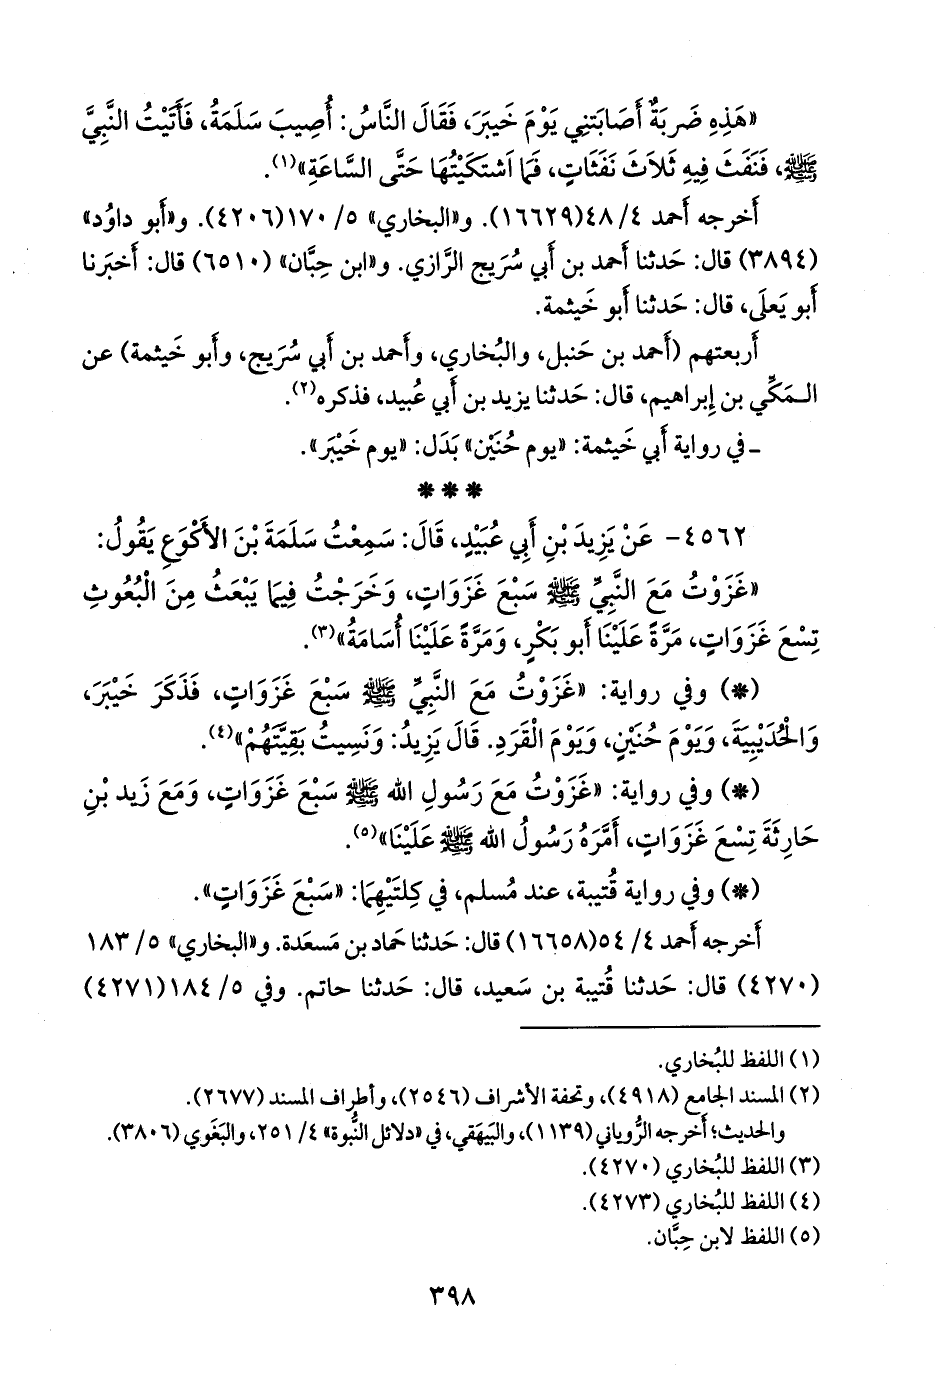 «هَذِهِ ضَرْبَةٌ أَصَابَتنِي يَوْمَ خَيبَرَ، فَقَالَ النَّاسُ: أُصِيبَ سَلَمَةُ، فَأَتَيْتُ النَّبِيَّ
ﷺ، فَنَفَثَ فِيهِ ثَلاَثَ نَفَثَاتٍ، فَمَا اشتَكَيْتُهَا حَتَّى السَّاعَةِ»(١).
أَخرجه أَحمد ٤/ ٤٨(١٦٦٢٩). و«البخاري» ٥/ ١٧٠(٤٢٠٦). و«أَبو داوُد»
(٣٨٩٤) قال: حَدثنا أَحمد بن أَبي سُرَيج الرَّازي. و«ابن حِبَّان» (٦٥١٠) قال: أَخبَرنا
أَبو يَعلَى، قال: حَدثنا أَبو خَيثمة.
أَربعتهم (أَحمد بن حَنبل، والبُخاري، وأَحمد بن أَبي سُرَيج، وأَبو خَيثمة) عن
الـمَكِّي بن إِبراهيم، قال: حَدثنا يزيد بن أَبي عُبيد، فذكره(٢).
ـ في رواية أَبي خَيثمة: «يوم حُنَيْن» بَدَل: «يوم خَيْبَر».
***
٤٥٦٢- عَنْ يَزِيدَ بْنِ أَبِي عُبَيْدٍ، قَالَ: سَمِعْتُ سَلَمَةَ بْنَ الأَكْوَعِ يَقُولُ:
«غَزَوْتُ مَعَ النَّبِيِّ ﷺ سَبْعَ غَزَوَاتٍ، وَخَرَجْتُ فِيمَا يَبْعَثُ مِنَ الْبُعُوثِ
تِسْعَ غَزَوَاتٍ، مَرَّةً عَلَيْنَا أَبو بَكْرٍ، وَمَرَّةً عَلَيْنَا أُسَامَةُ»(٣).
(*) وفي رواية: «غَزَوْتُ مَعَ النَّبِيِّ ﷺ سَبْعَ غَزَوَاتٍ، فَذَكَرَ خَيْبَرَ،
وَالْحُدَيْبِيَةَ، وَيَوْمَ حُنَيْنٍ، وَيَوْمَ الْقَرَدِ. قَالَ يَزِيدُ: وَنَسِيتُ بَقِيَّتَهُمْ»(٤).
(*) وفي رواية: «غَزَوْتُ مَعَ رَسُولِ الله ﷺ سَبْعَ غَزَوَاتٍ، وَمَعَ زَيد بْنِ
حَارِثَةَ تِسْعَ غَزَوَاتٍ، أَمَّرَهُ رَسُولُ الله ﷺ عَلَيْنَا»(٥).
(*) وفي رواية قُتيبة، عند مُسلم، في كِلتَيْهِمَا: «سَبْعَ غَزَوَاتٍ».
أَخرجه أَحمد ٤/ ٥٤(١٦٦٥٨) قال: حَدثنا حَماد بن مَسعَدة. و«البخاري» ٥/ ١٨٣
(٤٢٧٠) قال: حَدثنا قُتيبة بن سَعيد، قال: حَدثنا حاتم. وفي ٥/ ١٨٤(٤٢٧١)
(١) اللفظ للبُخاري.
(٢) المسند الجامع (٤٩١٨)، وتحفة الأشراف (٢٥٤٦)، وأطراف المسند (٢٦٧٧).
والحديث؛ أَخرجه الرُّوياني (١١٣٩)، والبَيهَقي، في «دلائل النُّبوة» ٤/ ٢٥١، والبَغَوي (٣٨٠٦).
(٣) اللفظ للبُخاري (٤٢٧٠).
(٤) اللفظ للبُخاري (٤٢٧٣).
(٥) اللفظ لابن حِبَّان.
٣٩٨